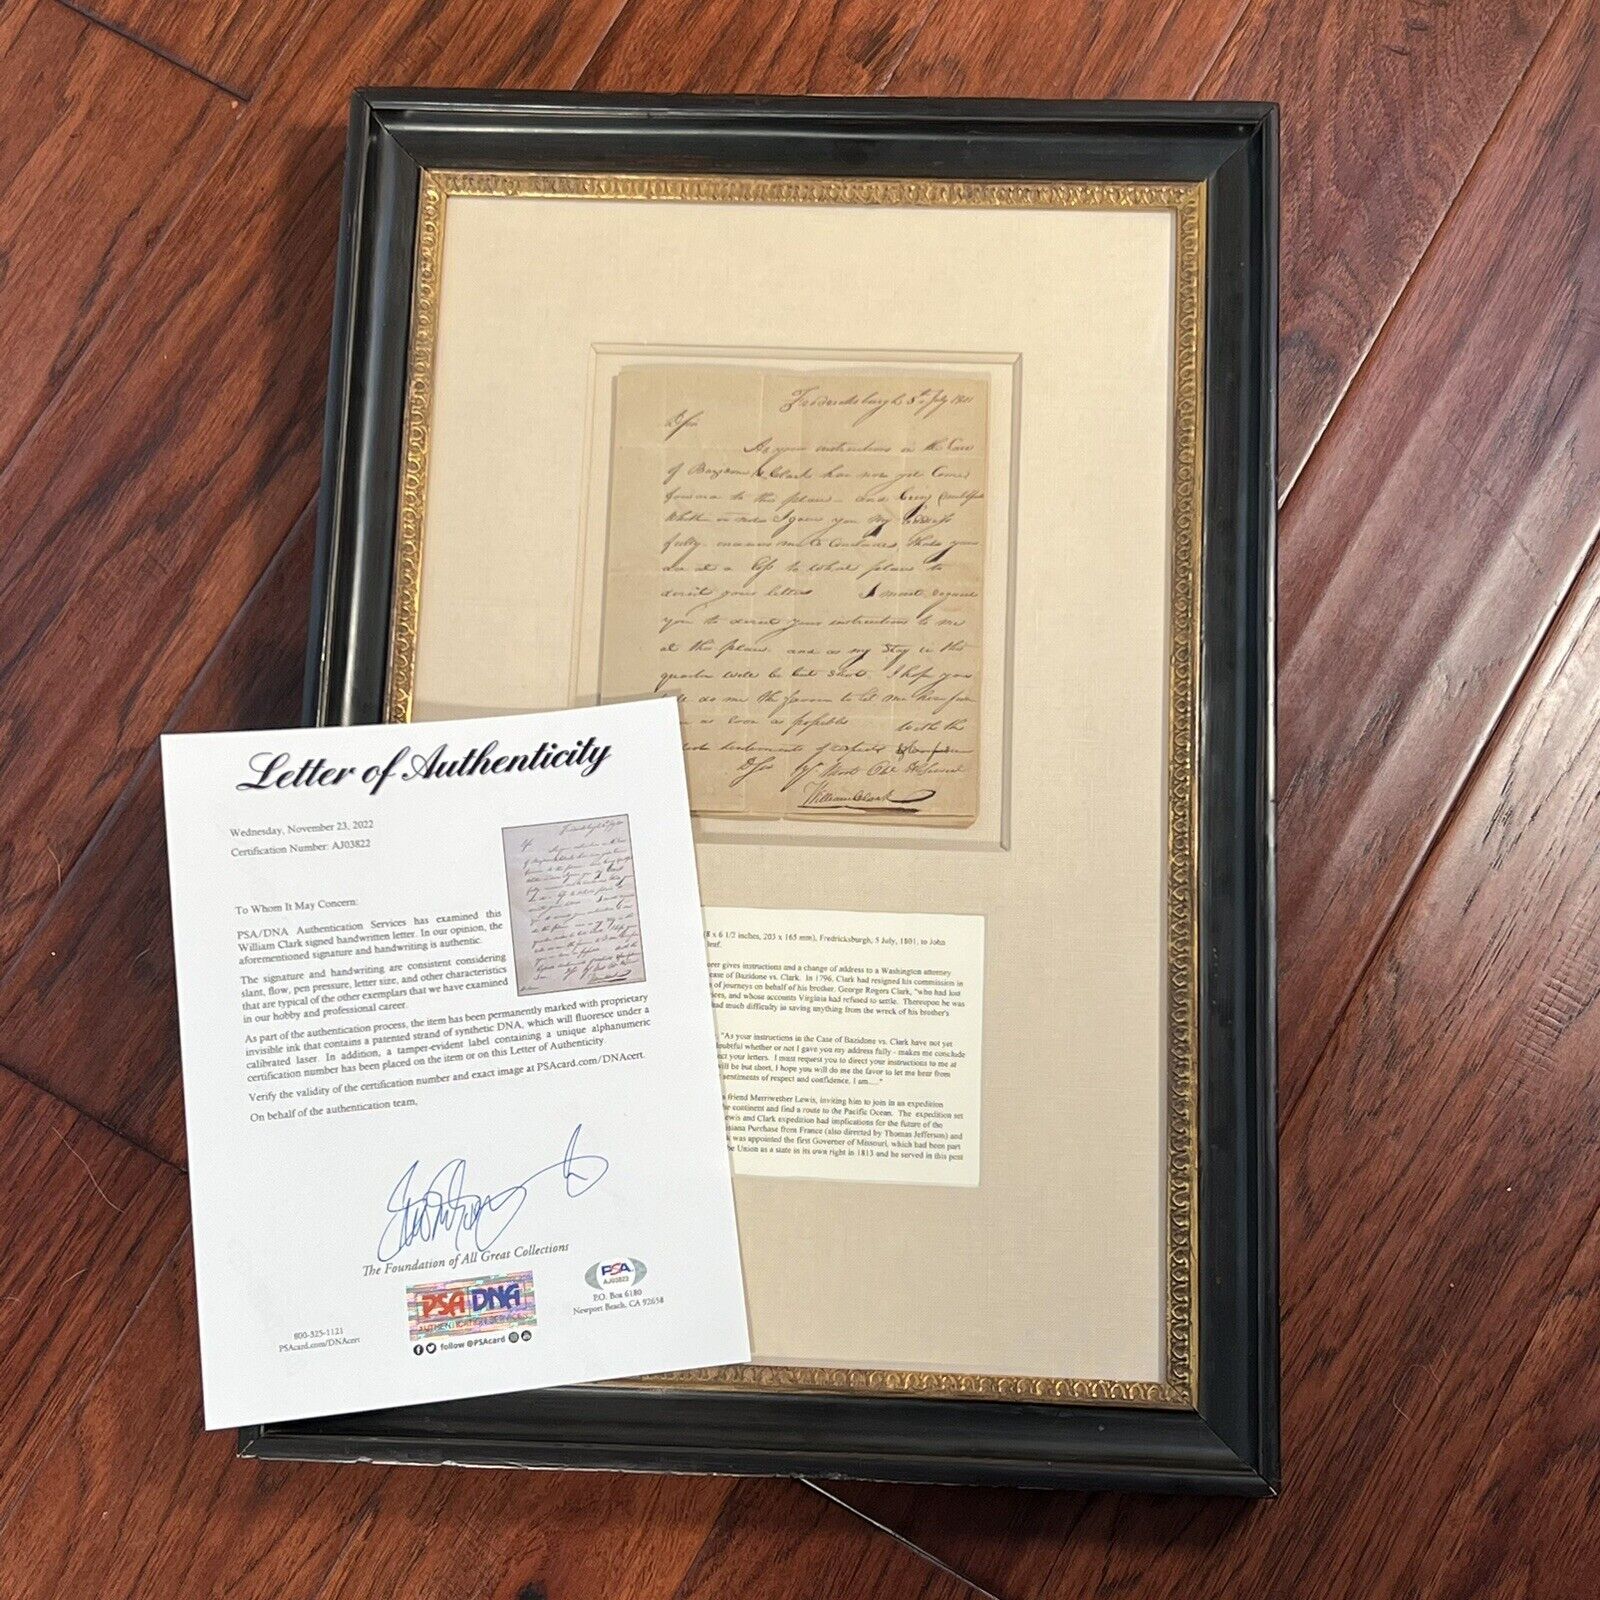 Fredericksburgh 5th July 1801
D Sir
As your instructions in the Case
of Bazadone vs Clark has not yet Come
forward to this place - and being doubtfull
whether or not I gave you my address
fully makes me to Conclude that you
are at a loss to what place to
direct your letters I must request
you to direct your instructions to me
at this place and as my Stay in this
quarter will be but Short I hope you
do me the favour to let me hear from
as Soon as possible with the
Sentiments of
D Sir Yr Most Obt H Servant
William Clark
(8 x 6 1/2 inches, 203 x 165 mm), Fredricksburgh, 5 July, 1801, to John
leaf.
orer gives instructions and a change of address to a Washington attorney
case of Bazidone vs. Clark. In 1796, Clark had resigned his commission in
of journeys on behalf of his brother, George Rogers Clark, "who had lost
ces, and whose accounts Virginia had refused to settle. Thereupon he was
had much difficulty in saving anything from the wreck of his brother's
"As your instructions in the Case of Bazidone vs. Clark have not yet
doubtful whether or not I gave you my address fully - makes me conclude
ect your letters. I must request you to direct your instructions to me at
will be but short, I hope you will do me the favor to let me hear from
sentiments of respect and confidence, I am....."
friend Merriwether Lewis, inviting him to join in an expedition
he continent and find a route to the Pacific Ocean. The expedition set
ewis and Clark expedition had implications for the future of the
isiana Purchase from France (also directed by Thomas Jefferson) and
k was appointed the first Governer of Missouri, which had been part
he Union as a state in its own right in 1813 and he served in this post
Letter of Authenticity
Wednesday, November 23, 2022
Certification Number: AJ03822
To Whom It May Concern:
PSA/DNA Authentication Services has examined this
William Clark signed handwritten letter. In our opinion, the
aforementioned signature and handwriting is authentic.
The signature and handwriting are consistent considering
slant, flow, pen pressure, letter size, and other characteristics
that are typical of the other exemplars that we have examined
in our hobby and professional career.
As part of the authentication process, the item has been permanently marked with proprietary
invisible ink that contains a patented strand of synthetic DNA, which will fluoresce under a
calibrated laser. In addition, a tamper-evident label containing a unique alphanumeric
certification number has been placed on the item or on this Letter of Authenticity
Verify the validity of the certification number and exact image at PSAcard.com/DNAcert.
On behalf of the authentication team,
The Foundation of All Great Collections
PSA DNA
AUTHENTICATION SERVICES
PSA
AJ03822
P.O. Box 6180
Newport Beach, CA 92658
800-325-1121
PSAcard.com/DNAcert
follow @PSAcard